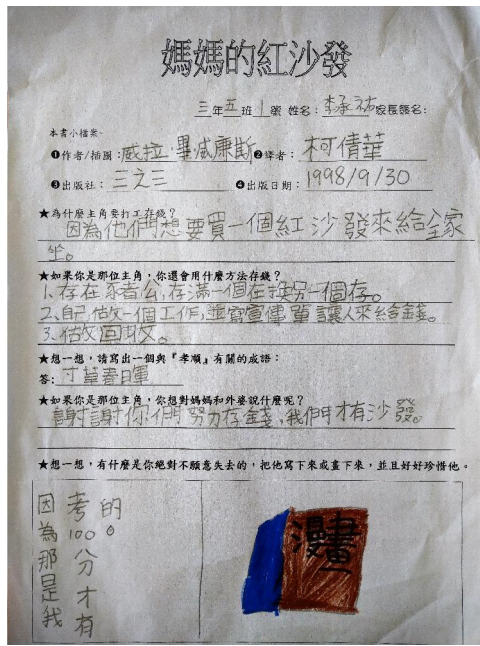 媽媽的紅沙發
三年五班1號 姓名:李承祐家長簽名:
本書小檔案~
❶作者/插圖:威拉.畢.威廉斯❷譯者:柯倩華
❸出版社:三之三 ❹出版日期:1998/9/30
★為什麼主角要打工存錢?
因為他們想要買一個紅沙發來給全家
坐。
★如果你是那位主角,你還會用什麼方法存錢?
1、存在豬公,存滿一個在換另一個存。
2、自己做一個工作,並寫宣傳單讓人來給錢。
3、做回收。
★想一想,請寫出一個與『孝順』有關的成語:
答:寸草春暉
★如果你是那位主角,你想對媽媽和外婆說什麼呢?
謝謝你們努力存錢,我們才有沙發。
★想一想,有什麼是你絕對不願意失去的,把他寫下來或畫下來,並且好好珍惜他。
因為那是我
考100分才有
的。
漫畫